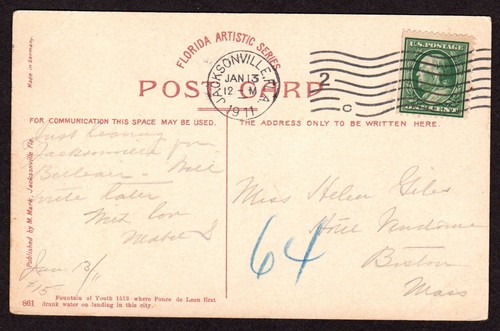 FLORIDA ARTISTIC SERIES.
POST CARD
JACKSONVILLE, FLA.
JAN 13
12 - M
1911
2
C
U.S. POSTAGE
ONE CENT
Made in Germany.
FOR COMMUNICATION THIS SPACE MAY BE USED.
THE ADDRESS ONLY TO BE WRITTEN HERE.
Just leaving
Jacksonville for
Belleair - Will
write later
With love
Mabel S
Jan. 13/11
7:15
Miss Helen Giles
Hotel Vendome
Boston
Mass
64
Published by M. Mark, Jacksonville Fla.
861
Fountain of Youth 1513 where Ponce de Leon first
drank water on landing in this city.